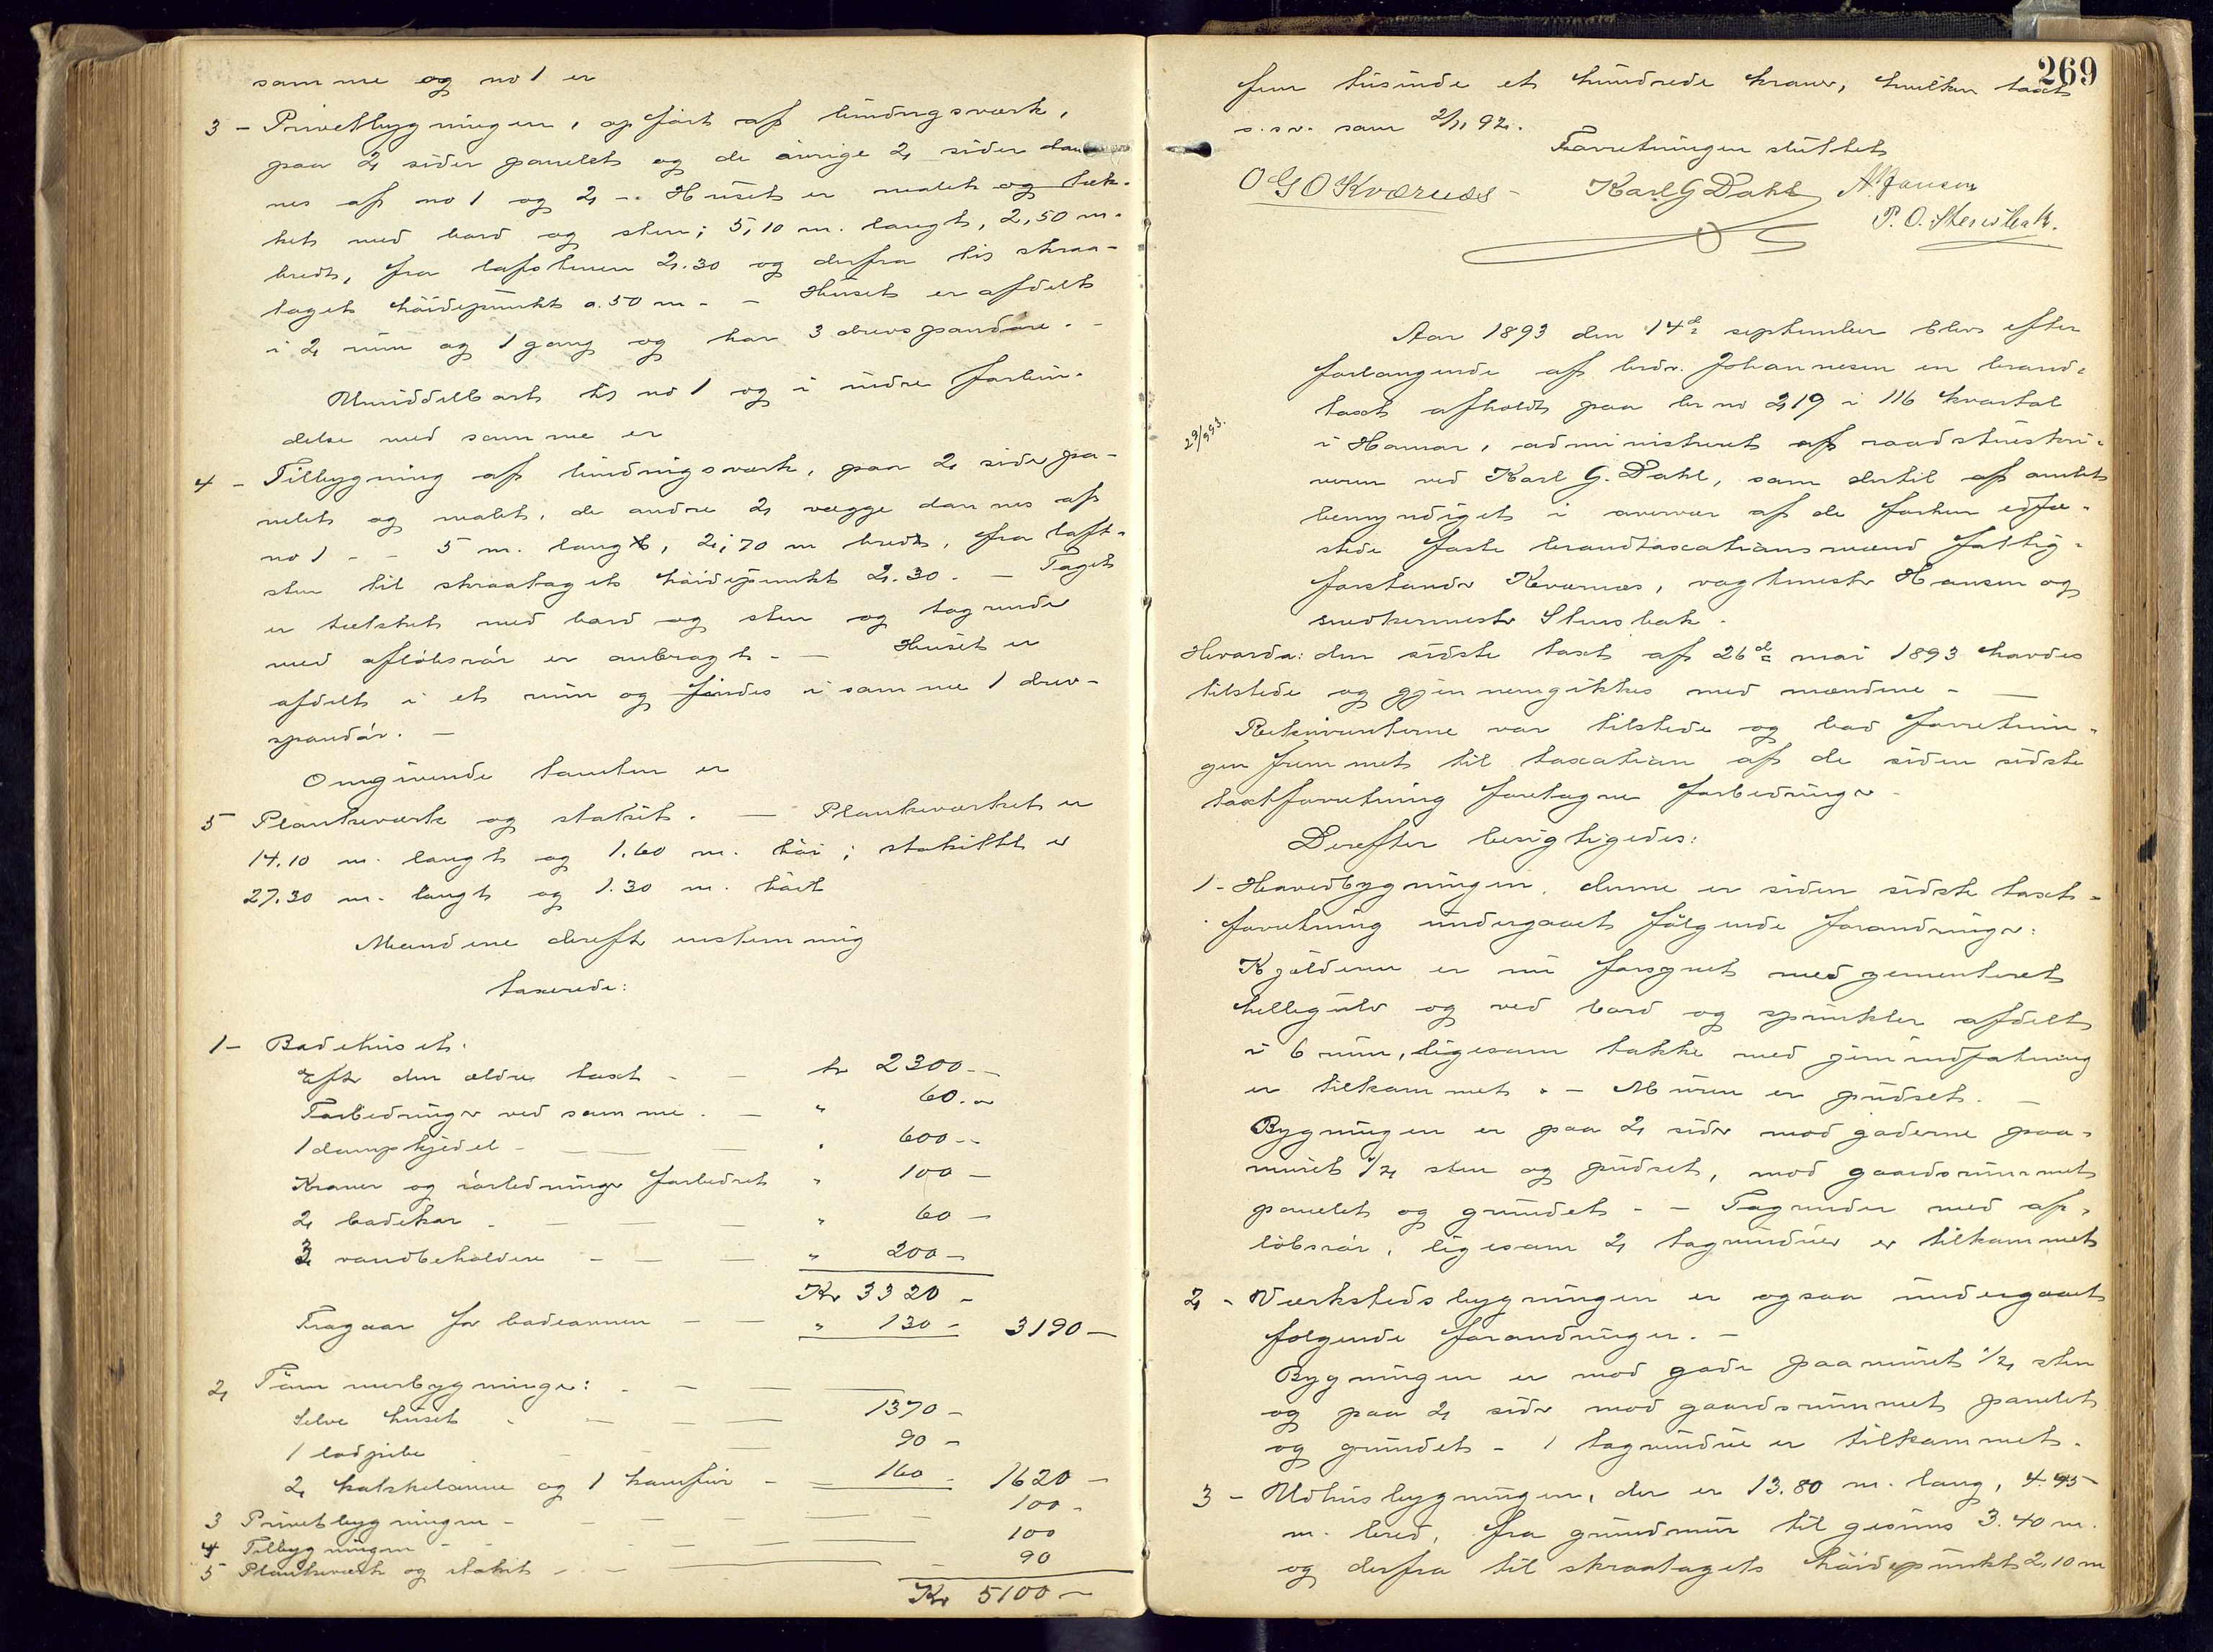 samme og no 1 er
3 - Privetbygningen, opført af bindingsværk,
paa 2 sider panelet og de øvrige 2 sider dan-
nes af no 1 og 2 -. Huset er malet og tæk-
ket med bord og sten; 5,10 m. langt, 2,50 m.
bredt, fra lafstenen 2.30 og derfra til skraa-
tagets høidepunkt 0.50 m - - Huset er afdelt
i 2 rum og 1 gang og har 3 drevspandøre. -
Umiddelbart til no 1 og i indre forbin-
delse med samme er
4 - Tilbygning af bindingsværk, paa 2 sider pa-
nelet og malet, de andre 2 vægge dannes af
no 1 - - 5 m. langt, 2,70 m bredt, fra laft-
sten til skraatagets høidepunkt 2.30. - Taget
er tækket med bord og sten og tagrende
med afløbsrør er anbragt. - Huset er
afdelt i et rum og findes i samme 1 drev-
spandør. -
Omgivende tomten er
5 Plankeværk og stakit. - Plankeværket er
14.10 m. langt og 1.60 m. høi; stakittet er
27.30 m. langt og 1.30 m. høit
Mændene derefter enstemmig
taxerede:
1 - Badehuset:
Efter den ældre taxt - - kr 2300 --
Forbedringer ved samme. - " 60. "
1 dampkjedel - - - " 600 --
Kraner og rørledninger forbedret " 100 -
2 badekar - - - " 60 -
3 vandbeholdere - - - " 200 -
Kr 3320 -
Fragaar for badeovnen - - " 130 - 3190 -
2 Tømmerbygninge: - - -
Selve huset - - - 1370 -
1 lodpibe - - - 90 -
2 kakkelovne og 1 komfur - 160 - 1620 -
3 Privetbygningen - - - 100 -
4 Tilbygningen - - - 100
5 Plankeværk og stakit - - - 90
Kr 5100 -
269
fem tusinde et hundrede kroner, hvilken taxt
o.s.v. som 2/11 92.
Forretningen sluttet
O G O Kværnæs - Karl G Dahl A Hansen
P. O. Stensbak.
Aar 1893 den 14de september blev efter
forlangende af brdr. Johannesen en brand-
taxt afholdt paa br no 219 i 116 kvartal
29/9 93.
i Hamar, administreret af raadstueskri-
veren ved Karl G. Dahl, som dertil af amtet
bemyndiget i overvær af de forhen edfæ-
stede faste brandtaxationsmænd fattig-
forstander Kværnæs, vagtmester Hansen og
snedkermester Stensbak.
Hvorda: den sidste taxt af 26de mai 1893 havdes
tilstede og gjennemgikkes med mændene - -
Rekvirenterne var tilstede og bad forretnin-
gen fremmet til taxation af de siden sidste
taxtforretning foretagne forbedringer -
Derefter besigtigedes:
1 - Hovedbygningen, denne er siden sidste taxt-
forretning undergaaet følgende forandringer:
Kjølderen er nu forsynet med zementeret
hellegulv og ved bord og sprinkler afdelt
i 6 rum, ligesom bakke med jernindfatning
er tilkommet. - Muren er pudset. -
Bygningen er paa 2 sider mod gaderne paa-
muret 1/2 sten og pudset, mod gaardsrummet
panelet og grundet. - Tagrender med af-
løbsrør, ligesom 2 tagvinduer er tilkommet
2 - Verkstedsbygningen er ogsaa undergaaet
følgende forandringer. -
Bygningen er mod gade paamuret 1/2 sten
og paa 2 sider mod gaardsrummet panelet
og grundet - 1 tagvindue er tilkommet.
3 - Udhusbygningen, der er 13.80 m. lang, 4.45
m. bred, fra grundmur til gesims 3.40 m.
og derfra til skraatagets høidepunkt 2,10 m